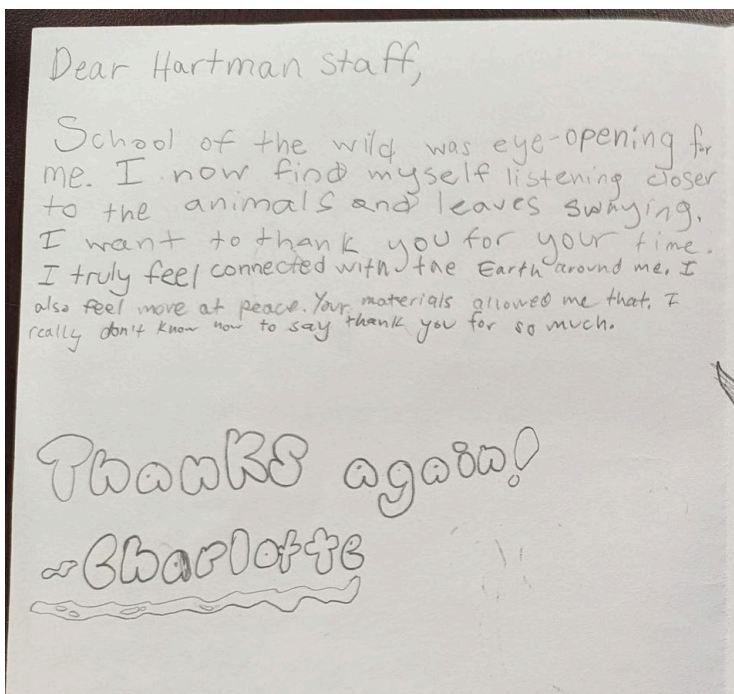 Dear Hartman Staff,
School of the wild was eye-opening for
me. I now find myself listening closer
to the animals and leaves swaying.
I want to thank you for your time.
I truly feel connected with the Earth around me. I
also feel more at peace. Your materials allowed me that. I
really don't know how to say thank you for so much.
Thanks again!
~Charlotte